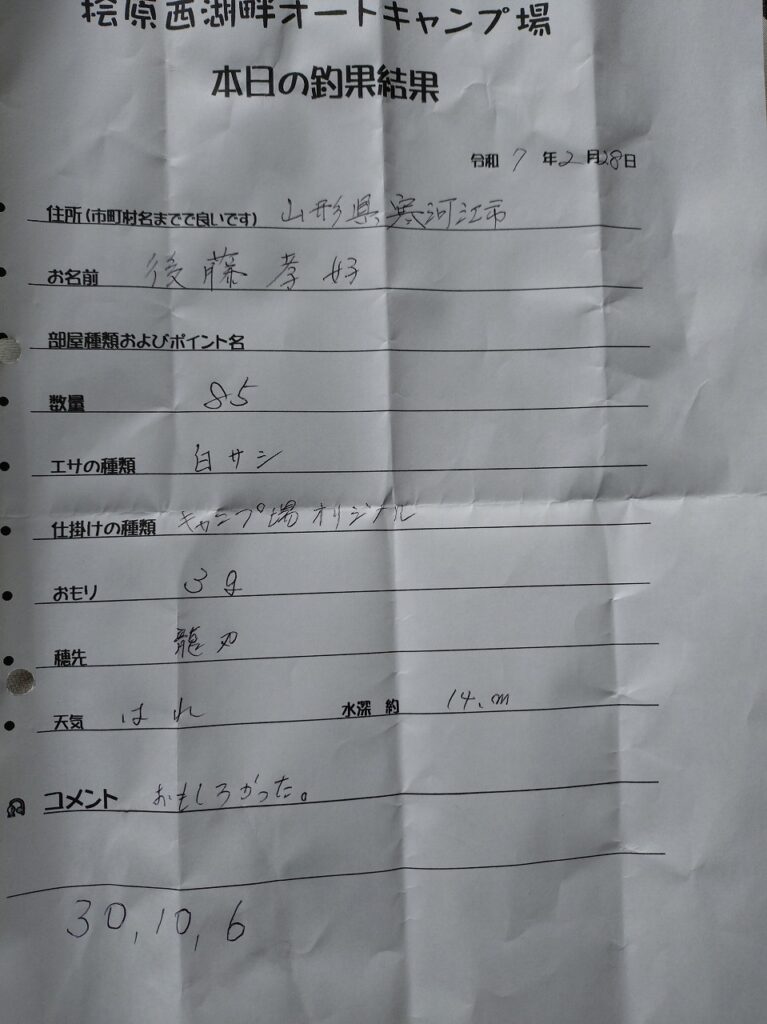 桧原西湖畔オートキャンプ場
本日の釣果結果
令和 7 年 2 月 28 日
住所(市町村名までで良いです) 山形県寒河江市
お名前 後藤孝好
部屋種類およびポイント名
数量 85
エサの種類 白サシ
仕掛けの種類 キャンプ場オリジナル
おもり 3g
穂先 龍刃
天気 はれ 水深 約 14.m
コメント おもしろかった。
30,10,6